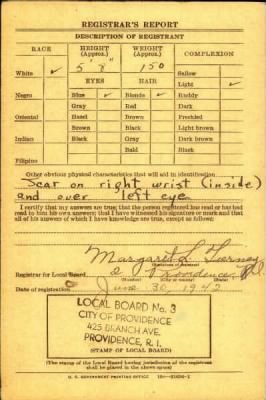 REGISTRAR'S REPORT
DESCRIPTION OF REGISTRANT
RACE HEIGHT (Approx.) WEIGHT (Approx.) COMPLEXION
5' 8" 150
White ✓ Sallow
EYES HAIR Light ✓
Negro Blue ✓ Blonde ✓ Ruddy
Gray Red Dark
Oriental Hazel Brown Freckled
Brown Black Light brown
Indian Black Gray Dark brown
Bald Black
Filipino
Other obvious physical characteristics that will aid in identification
Scar on right wrist (inside)
and over left eye
I certify that my answers are true; that the person registered has read or has had
read to him his own answers; that I have witnessed his signature or mark and that
all of his answers of which I have knowledge are true, except as follows:
Margaret L.
Registrar for Local Board 2 Providence R.I.
Date of registration June 30, 1942
LOCAL BOARD No. 3
CITY OF PROVIDENCE
425 BRANCH AVE.
PROVIDENCE, R. I.
(STAMP OF LOCAL BOARD)
(The stamp of the Local Board having jurisdiction of the registrant
shall be placed in the above space)
U. S. GOVERNMENT PRINTING OFFICE